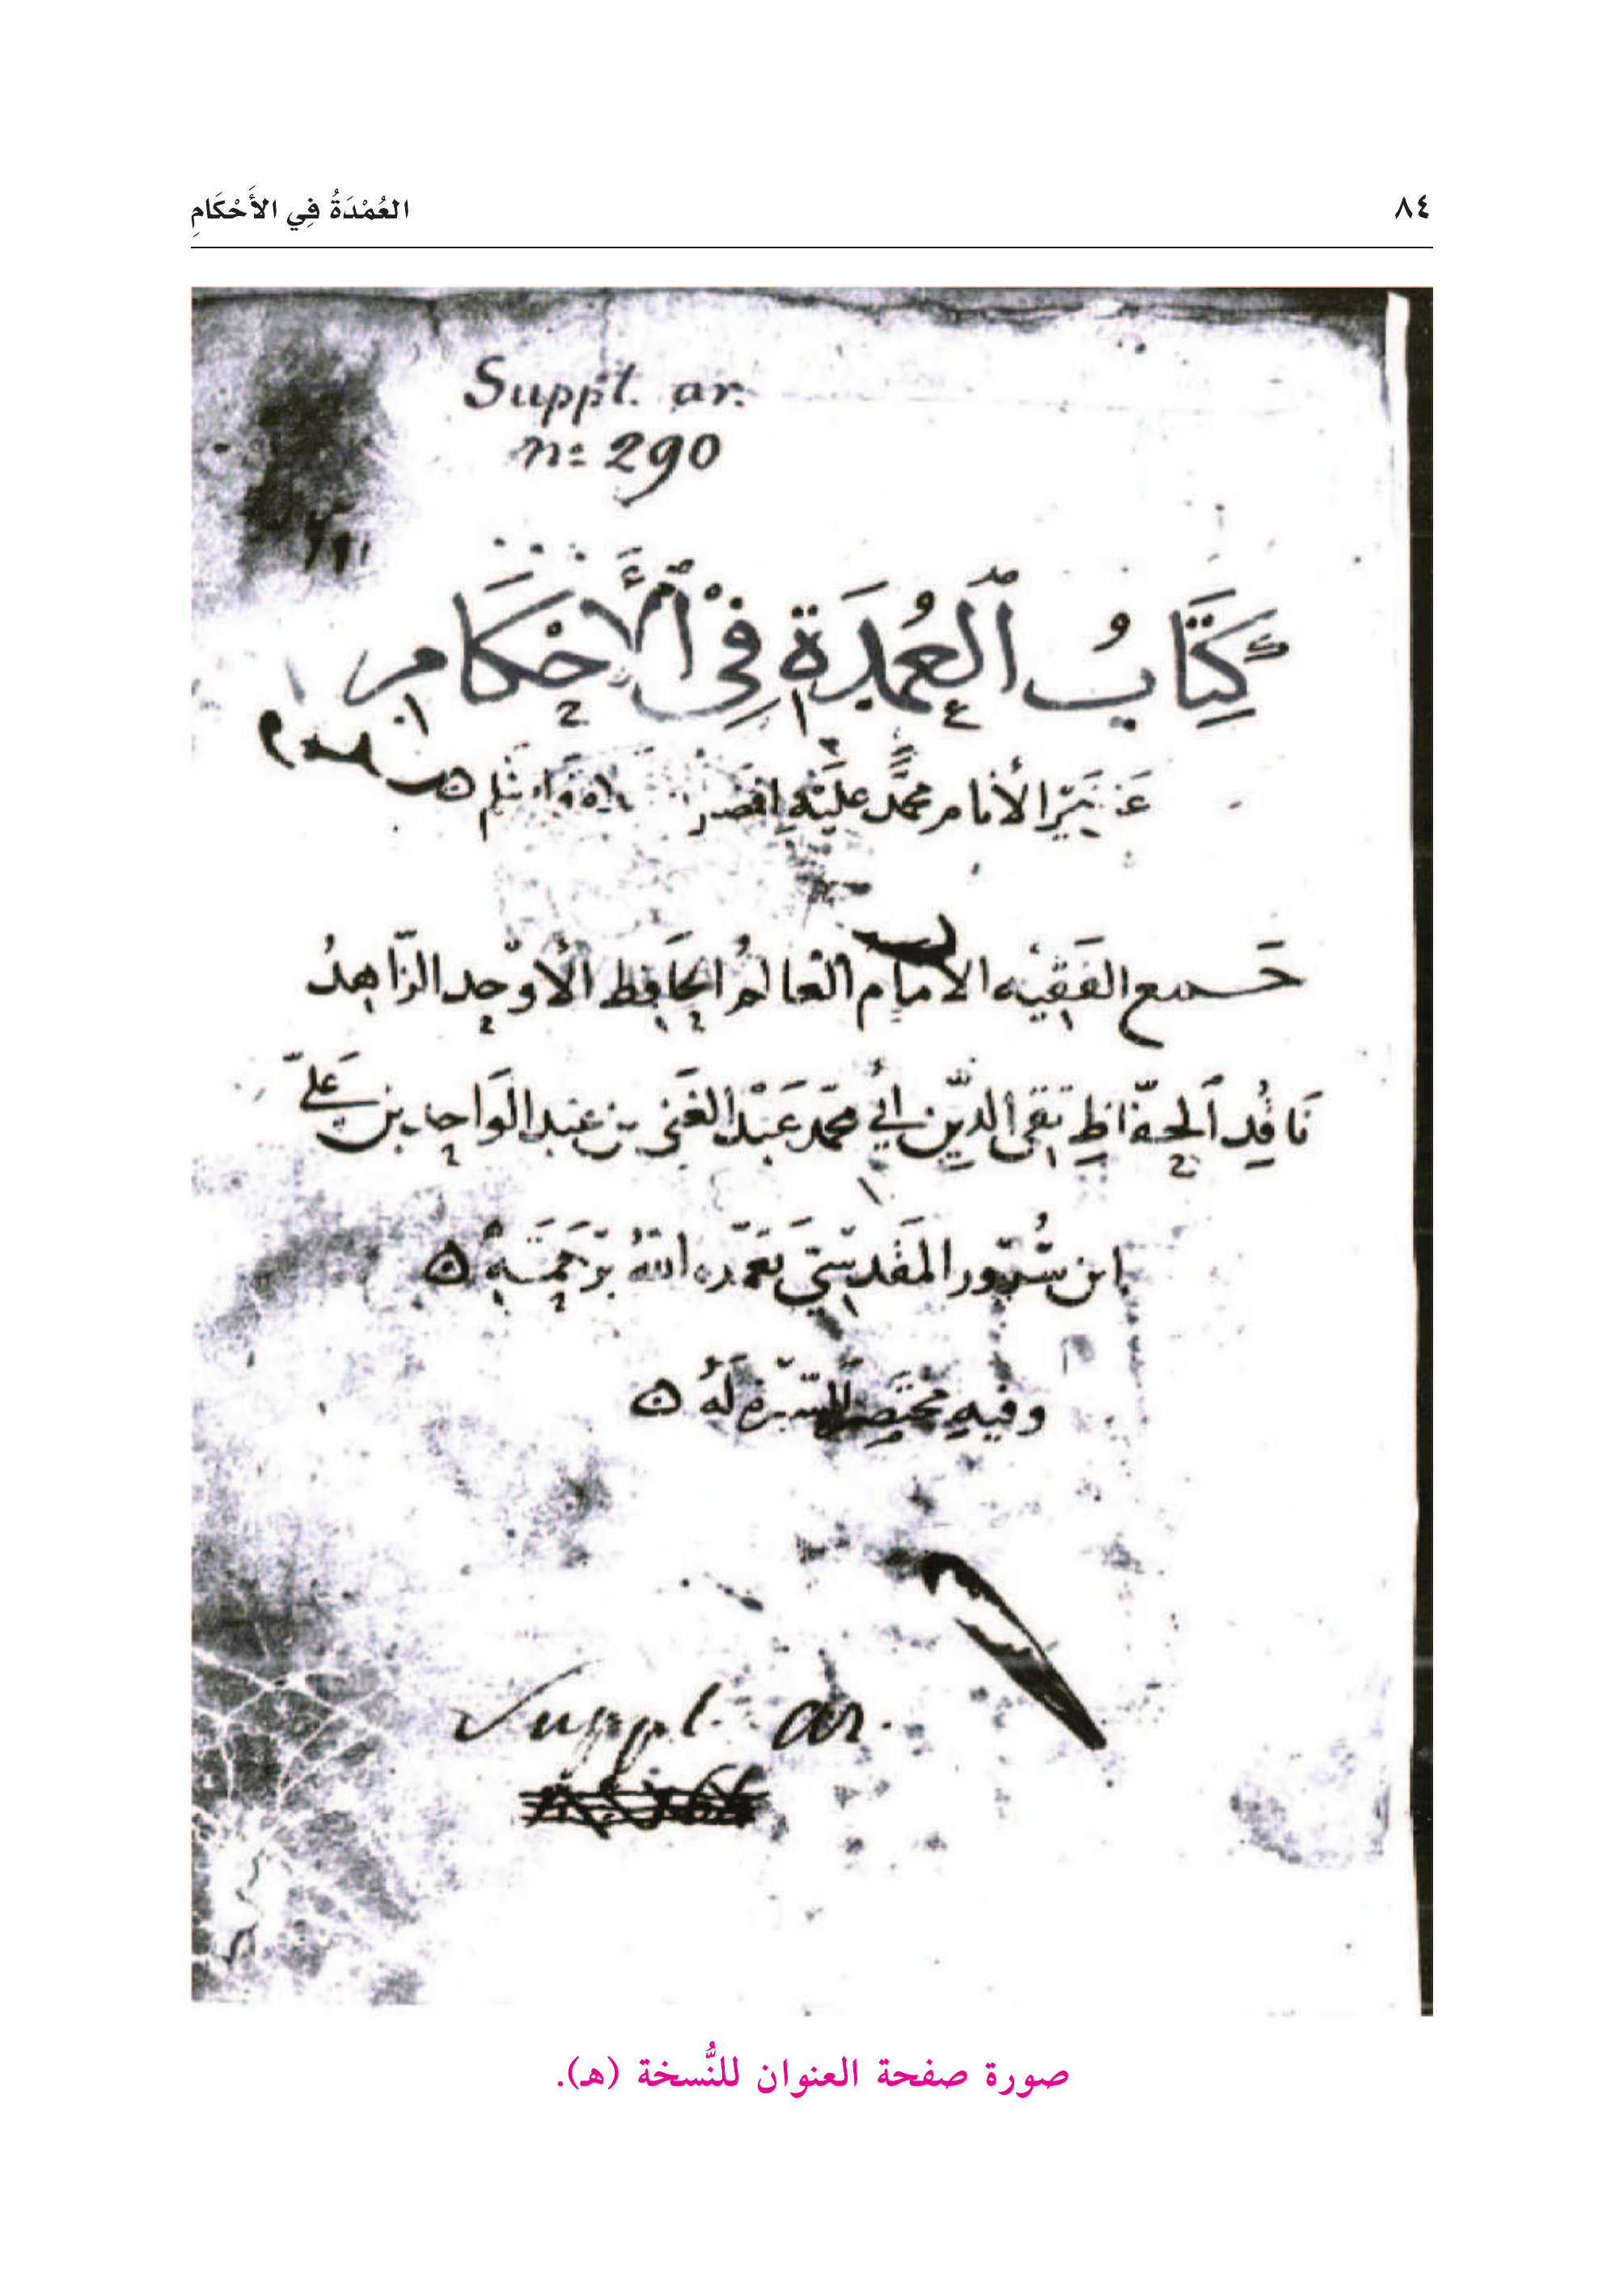 ٨٤
العُمْدَةُ فِي الأَحْكَامِ
Suppl. ar.
n= 290
كِتَابُ ٱلعُمْدَة فِي ٱلأَحْكَام
الأنام محمَّد عليْه
جمع الفَقيْه الامام العالم الحَافِظ الأوْحِد الزّاهدُ
نَاقُدِ ٱلحفّاظِ تقي الدِّين أبي محمّد عَبْد الغَني بن عبد الوَاحِد بن عَليّ
ابن سُرُور المَقدسيّ تغمّده اللهُ برَحمَتهِ ه
وفيهِ مختَصر السّيرة لَهُ ه
Suppl. ar.
صورة صفحة العنوان للنُّسخة (هـ).